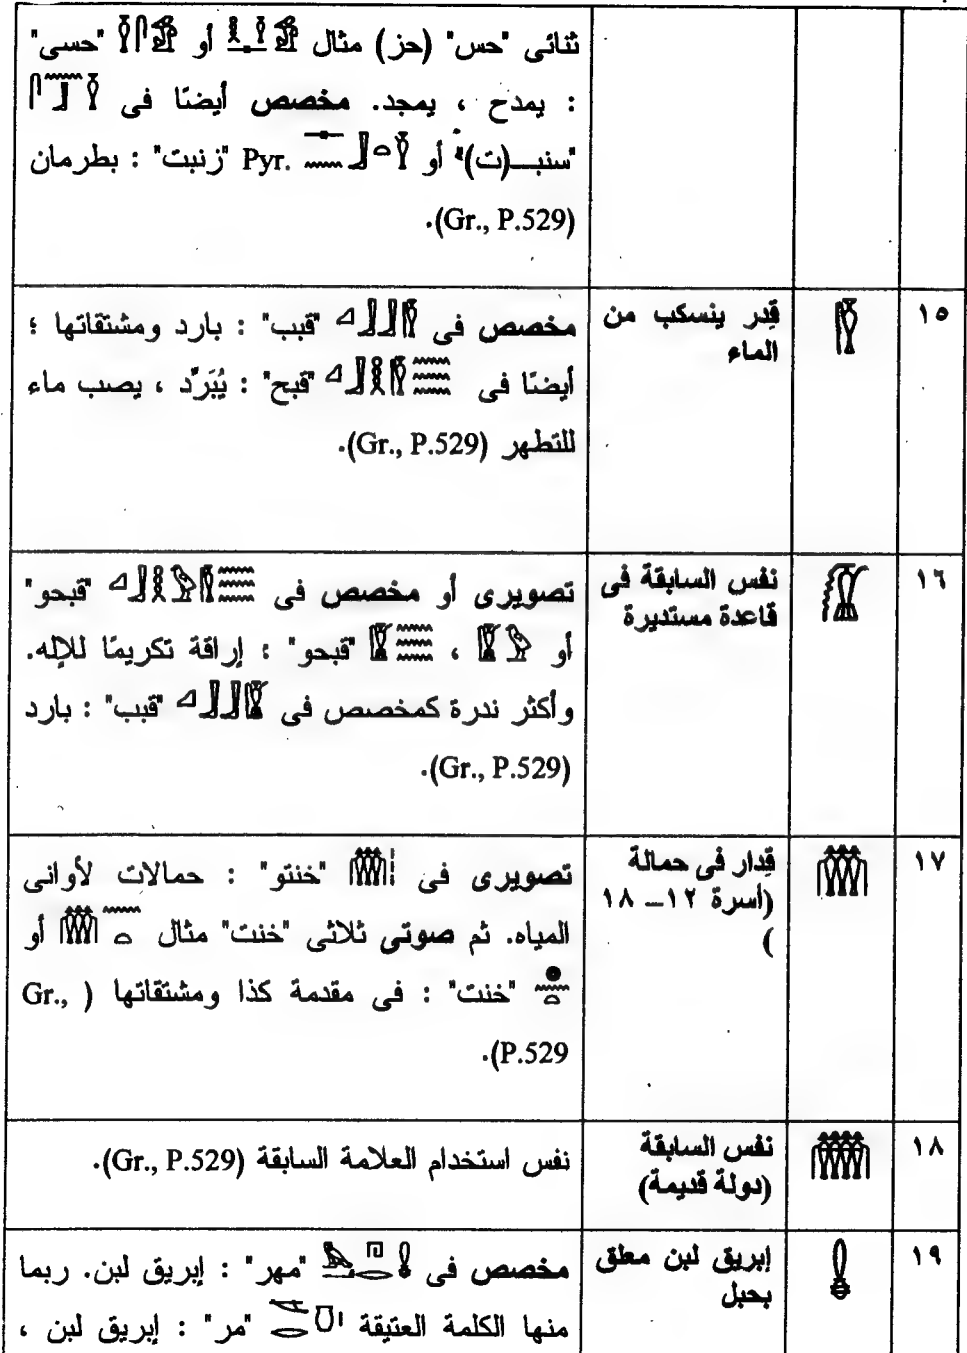 ثنائى "حس" (حز) مثال أو "حسى"
: يمدح ، يمجد. مخصص أيضًا فى
"سنبـ(ت)" أو Pyr. "زنبت" : بطرمان
(Gr., P.529).
١٥
قِدر ينسكب من
الماء
مخصص فى "قبب" : بارد ومشتقاتها ؛
أيضًا فى "قبح" : يُبَرِّد ، يصب ماء
للتطهر (Gr., P.529).
١٦
نفس السابقة فى
قاعدة مستديرة
تصويرى أو مخصص فى "قبحو"
أو ، "قبحو" : إراقة تكريمًا للإله.
وأكثر ندرة كمخصص فى "قبب" : بارد
(Gr., P.529).
١٧
قِدار فى حمالة
(أسرة ١٢ــ ١٨
)
تصويرى فى "خنتو" : حمالات لأوانى
المياه. ثم صوتى ثلاثى "خنت" مثال أو
"خنت" : فى مقدمة كذا ومشتقاتها ( Gr.,
P.529).
١٨
نفس السابقة
(دولة قديمة)
نفس استخدام العلامة السابقة (Gr., P.529).
١٩
إبريق لبن معلق
بحبل
مخصص فى "مهر" : إبريق لبن. ربما
منها الكلمة العتيقة "مر" : إبريق لبن ،